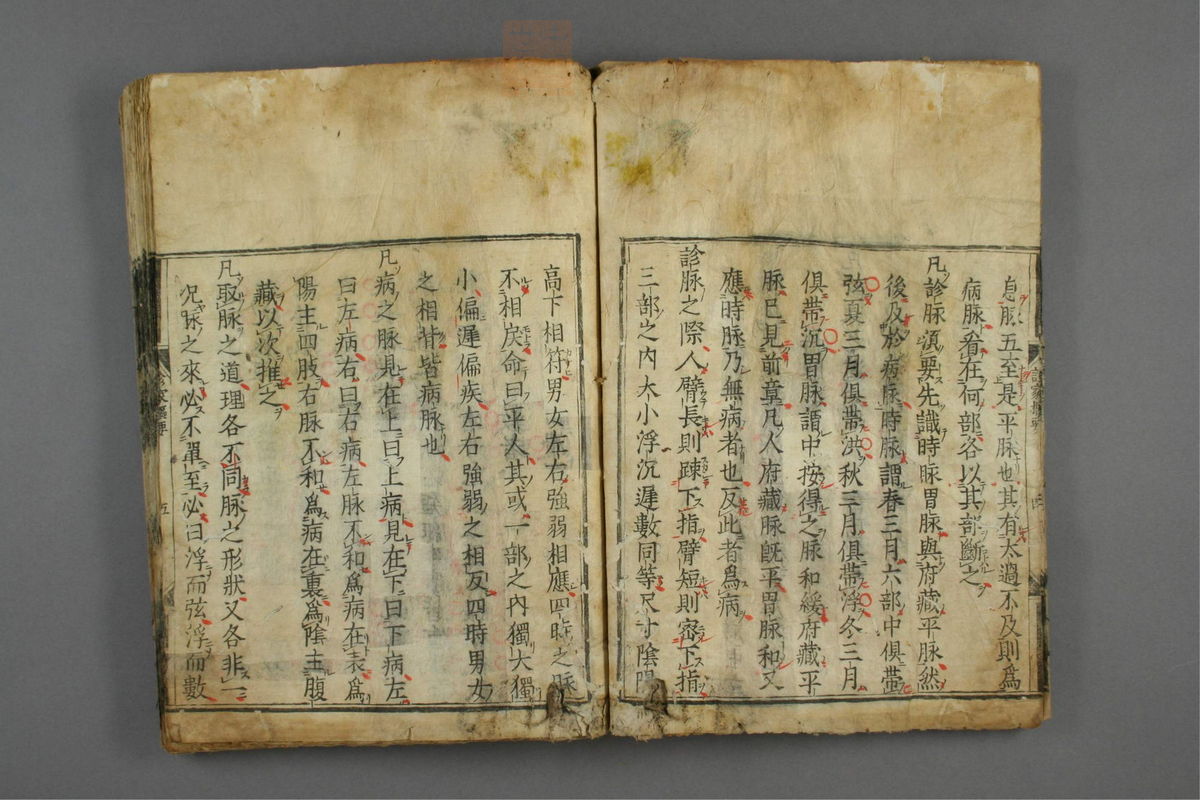 息脉五至是平脉也其有太過不及則爲
病脉看在何部各以其部斷之
凡診脉須要先識時脉胃脉與府藏平脉然
後及於病脉時脉謂春三月六部中俱帶
弦夏三月俱帶洪秋三月俱帶浮冬三月
俱帶沉胃脉謂中按得之脉和緩府藏平
脉已見前章凡人府藏脉既平胃脉和又
應時脉乃無病者也反此者爲病
診脉之際人臂長則疎下指臂短則密下指
三部之内大小浮沉遲數同等尺寸陰陽
高下相符男女左右強弱相應四時之脉
不相戾命曰平人其或一部之内獨大獨
小偏遲偏疾左右強弱之相反四時男女
之相背皆病脉也
凡病之脉見在上曰上病見在下曰下病左
曰左病右曰右病左脉不和爲病在表爲
陽主四肢右脉不和爲病在裏爲陰主腹
藏以次推之
凡取脉之道理各不同脉之形狀又各非一
况脉之來必不單至必曰浮而弦浮而數
五